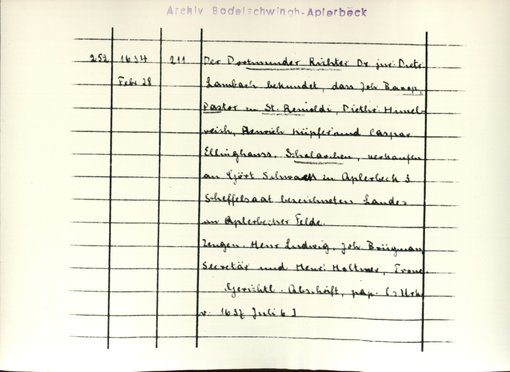 Archiv Bodelschwingh-Aplerbeck
252 1634 211 Der Dortmunder Richter Dr. jur. Dietr.
Febr 28 Lambach bekundet, dass Joh
Pastor in St. Reinoldi, Diethr.
Heinrich Küpfer und Caspar
Ellinghauss, Scholarchen, verkaufen
an Gört Schwarte in Aplerbeck 3
Scheffelsaat bezeichneten Landes
im Aplerbecker Felde.
Zeugen: Henr Ludwig, Joh. Brügman,
Secretär und Henr.
Gerichtl. Abschrift, pap.
v. 1637 Juli 6